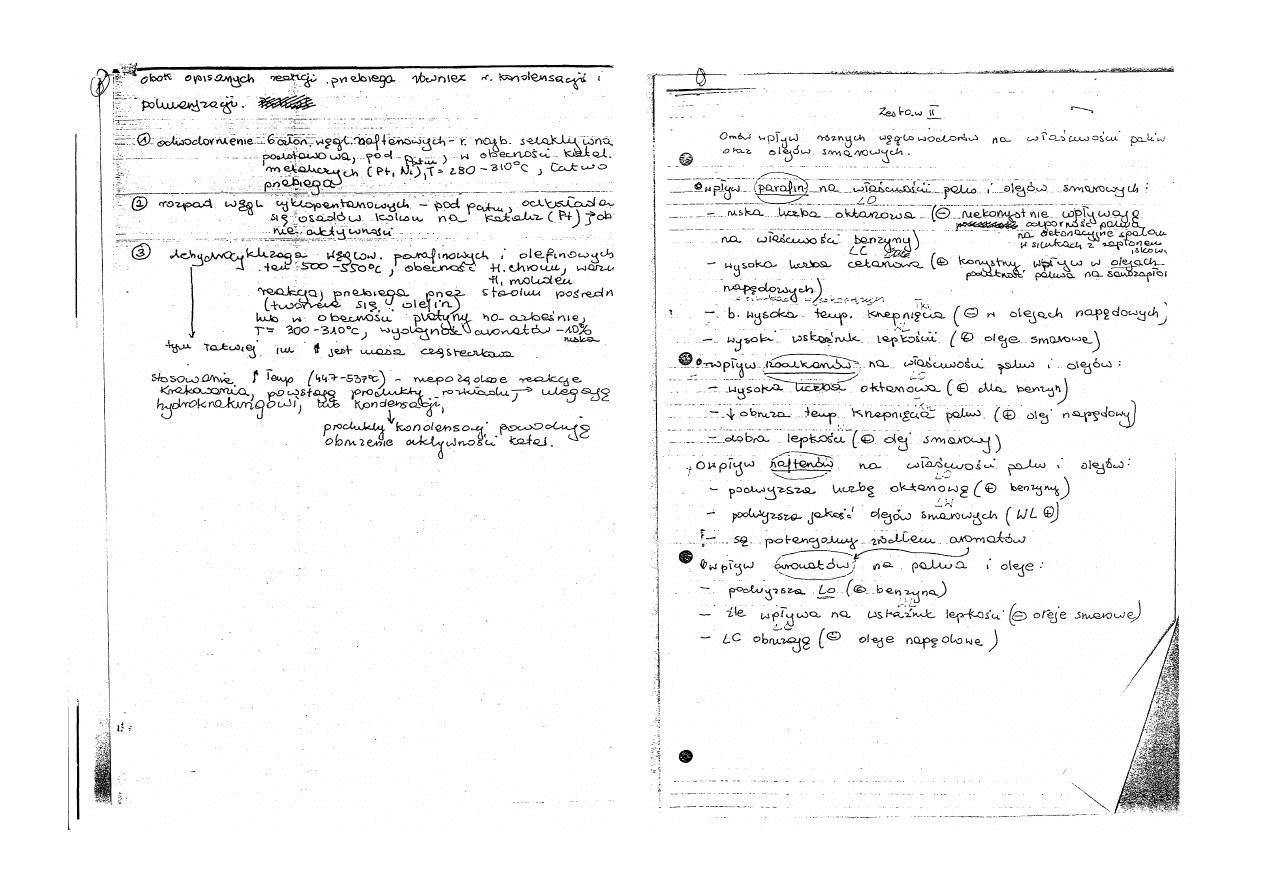 obok opisanych reakcji przebiega również r. kondensacji i
polimeryzacji.
① odwodornienie 6 człon. węgl. naftenowych - r. najb. selektywna
podstawowa, pod patm, w obecności katal.
metalicznych (Pt, Ni), T = 280 - 310°C, łatwo
przebiega
② rozpad węgl cyklopentanowych - pod patm, odkłada
się osadów koksu na kataliz (Pt) ↓ob
nie aktywności
③ dehydrocyklizacja węglow. parafinowych i olefinowych
tem 500-550°C, obecność tl. chromu,
tl. molibden
reakcja przebiega przez stadium pośredn
(tworzenie się olefin)
lub w obecności platyny na azbeście,
T = 300-310°C, wydajność aromatów ~10%
niska
tym łatwiej im ↑ jest masa cząsteczkowa
stosowanie ↑ temp (447-537°C) - niepożądane reakcje
krakowania, powstają produkty rozkładu, → ulegają
hydrokrakingowi, lub kondensacji,
produkty kondensacji powodują
obniżenie aktywności katal.
Zestaw II
Omów wpływ różnych węglowodorów na właściwości paliw
oraz olejów smarowych.
wpływ parafin na właściwości paliw i olejów smarowych:
LO
- niska liczba oktanowa (⊖ niekorzystnie wpływają
odporność paliwa
na detonacyjne spalan
w silnikach z zapłonem
iskow.
na właściwości benzyny)
LC
- wysoka liczba cetanowa (⊕ korzystny wpływ w olejach
podatność paliwa na samozapłon
napędowych)
- b. wysoka temp. krzepnięcia (⊖ w olejach napędowych)
- wysoki wskaźnik lepkości (⊕ oleje smarowe)
wpływ izoalkanów na właściwości paliw i olejów:
- wysoka liczba oktanowa (⊕ dla benzyn)
- ↓ obniża temp. krzepnięcia paliw (⊕ olej napędowy)
- dobra lepkość (⊕ olej smarowy)
wpływ naftenów na właściwości paliw i olejów:
LO
- podwyższa liczbę oktanową (⊕ benzyny)
- podwyższa jakość olejów smarowych (WL ⊕)
- są potencjalnym źródłem aromatów
wpływ aromatów na paliwa i oleje:
- podwyższa LO (⊕ benzyna)
- źle wpływa na wskaźnik lepkości (⊖ oleje smarowe)
- LC obniżają (⊖ oleje napędowe)